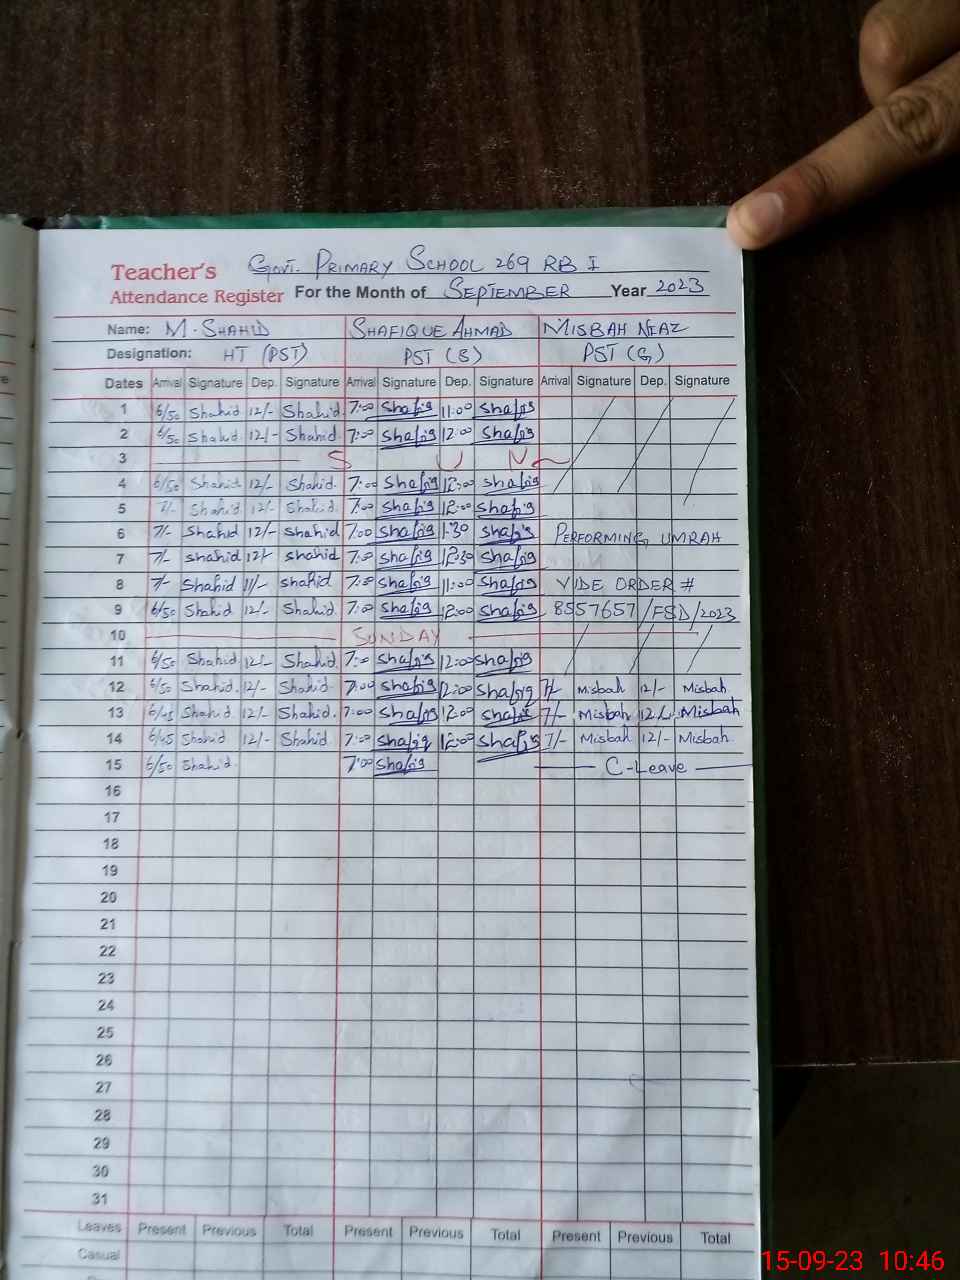 Teacher's GOVT. PRIMARY SCHOOL 269 RB I
Attendance Register For the Month of SEPTEMBER Year 2023
Name: M. SHAHID SHAFIQUE AHMAD MISBAH NIAZ
Designation: HT (PST) PST (B) PST (G)
Dates Arrival Signature Dep. Signature Arrival Signature Dep. Signature Arrival Signature Dep. Signature
1 6/50 Shahid 12/- Shahid. 7:00 Shafiq 11:00 Shafiq
2 6/50 Shahid 12/- Shahid. 7:00 Shafiq 12:00 Shafiq
3 S U N
4 6/50 Shahid 12/- Shahid. 7:00 Shafiq 12:00 Shafiq
5 7/- Shahid 12/- Shahid. 7:00 Shafiq 12:00 Shafiq
6 7/- Shahid 12/- Shahid 7:00 Shafiq 1:30 Shafiq PERFORMING UMRAH
7 7/- Shahid 12/- Shahid 7:00 Shafiq 12:30 Shafiq
8 7/- Shahid 11/- Shahid 7:00 Shafiq 11:00 Shafiq VIDE ORDER #
9 6/50 Shahid 12/- Shahid. 7:00 Shafiq 12:00 Shafiq 8557657/FSD/2023
10 SUNDAY
11 6/50 Shahid 12/- Shahid. 7:00 Shafiq 12:00 Shafiq
12 6/50 Shahid. 12/- Shahid. 7:00 Shafiq 12:00 Shafiq 7/- Misbah 12/- Misbah.
13 6/45 Shahid. 12/- Shahid. 7:00 Shafiq 12:00 Shafiq 7/- Misbah 12/- Misbah
14 6/45 Shahid 12/- Shahid. 7:00 Shafiq 12:00 Shafiq 7/- Misbah 12/- Misbah.
15 6/50 Shahid. 7:00 Shafiq C-Leave
16
17
18
19
20
21
22
23
24
25
26
27
28
29
30
31
Leaves Present Previous Total Present Previous Total Present Previous Total
Casual
15-09-23 10:46